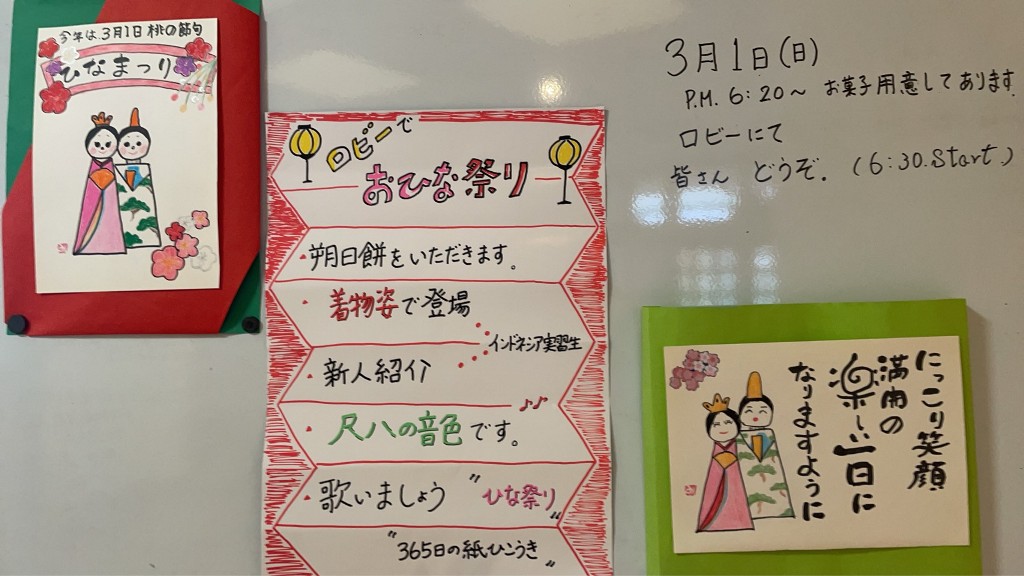 今年は、3月1日 桃の節句
ひなまつり
ロビーで
おひな祭り
・朔日餅をいただきます。
・着物姿で登場
インドネシア実習生
・新人紹介
・尺八の音色です。♪♪
・歌いましょう "ひな祭り"
"365日の紙ひこうき"
3月1日(日)
P.M. 6:20〜 お菓子用意してあります
ロビーにて
皆さん どうぞ。(6:30.Start)
にっこり笑顔
満開の
楽しい一日に
なりますように